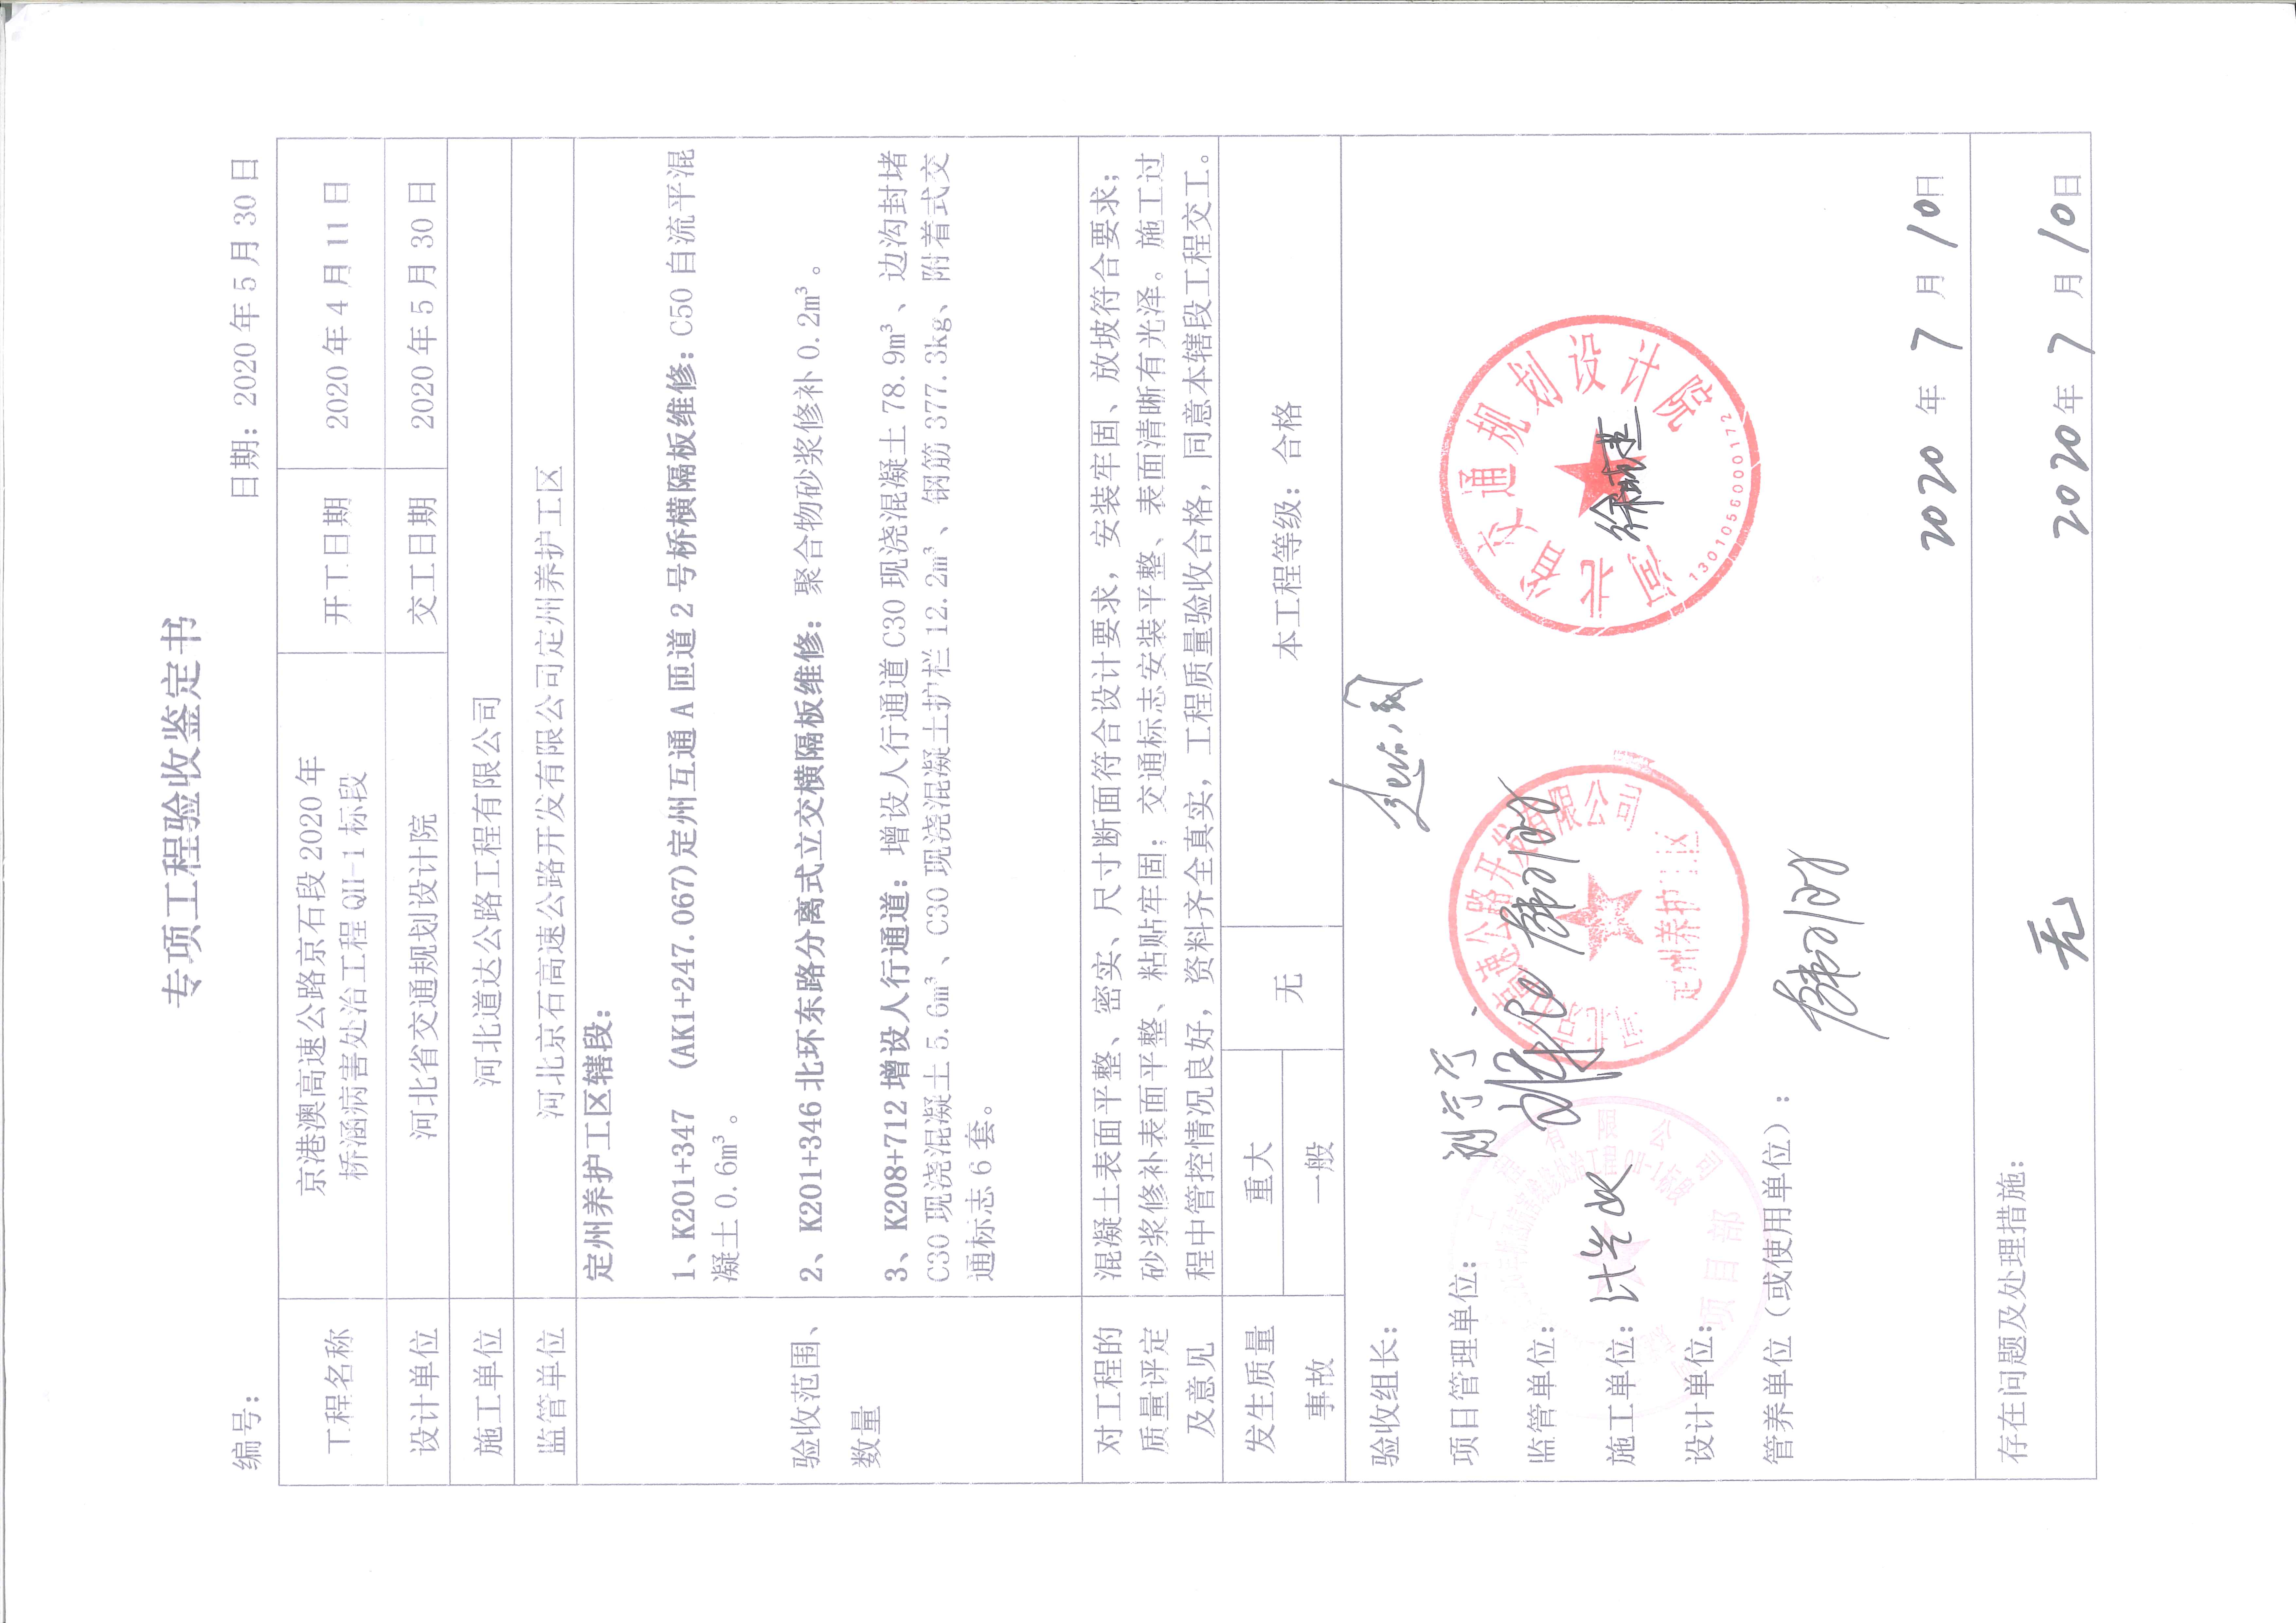 专项工程验收鉴定书
编号： 日期：2020年5月30日
工程名称 京港澳高速公路京石段2020年 开工日期 2020年4月11日
桥涵病害处治工程QH-1标段
设计单位 河北省交通规划设计院 交工日期 2020年5月30日
施工单位 河北道达公路工程有限公司
监管单位 河北京石高速公路开发有限公司定州养护工区
验收范围、
数量
定州养护工区辖段：
1、K201+347 (AK1+247.067)定州互通A匝道2号桥横隔板维修：C50自流平混
凝土0.6m³。
2、K201+346北环东路分离式立交横隔板维修：聚合物砂浆修补0.2m³。
3、K208+712增设人行通道：增设人行通道C30现浇混凝土78.9m³、边沟封堵
C30现浇混凝土5.6m³、C30现浇混凝土护栏12.2m³、钢筋377.3kg、附着式交
通标志6套。
对工程的
质量评定
及意见
混凝土表面平整、密实、尺寸断面符合设计要求，安装牢固、放坡符合要求；
砂浆修补表面平整、粘贴牢固；交通标志安装平整、表面清晰有光泽。施工过
程中管控情况良好，资料齐全真实，工程质量验收合格，同意本辖段工程交工。
发生质量
事故
重大
一般
无
本工程等级：合格
验收组长：
项目管理单位：
监管单位：
施工单位：
设计单位：
管养单位（或使用单位）：
高速公路开发有限公司
定州养护工区
项目部
河北省交通规划设计院
1301056000172
2020年7月10日
存在问题及处理措施：
无
2020年7月10日